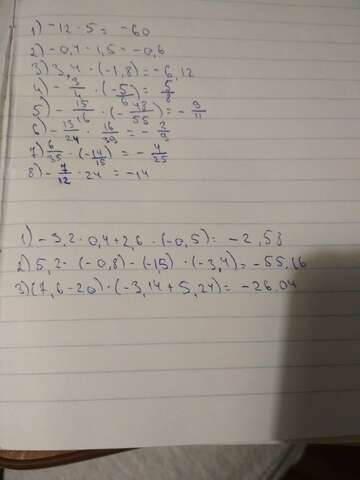 1) -12 · 5 = -60
2) -0,4 · 1,5 = -0,6
3) 3,4 · (-1,8) = -6,12
4) -3/4 · (-5/6) = 5/8
5) -15/16 · (-48/55) = -9/11
6) -13/24 · 16/39 = -2/9
7) 6/35 · (-14/15) = -4/25
8) -7/12 · 24 = -14
1) -3,2 · 0,4 + 2,6 · (-0,5) = -2,58
2) 5,2 · (-0,8) - (-15) · (-3,4) = -55,16
3) (7,6 - 20) · (-3,14 + 5,24) = -26.04